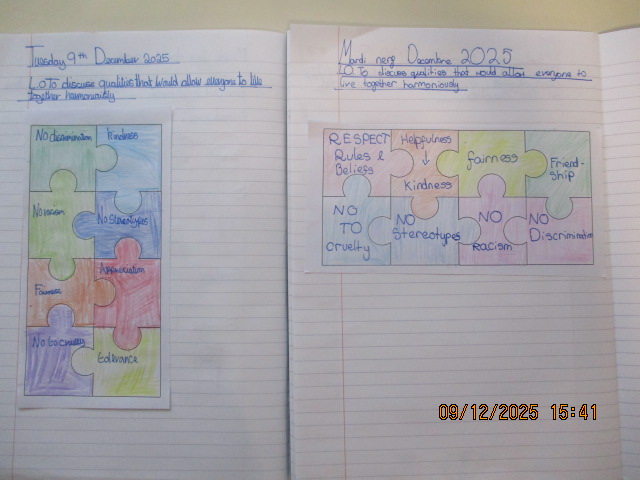 Tuesday 9th December 2025
L.O To discuss qualities that would allow everyone to live
together harmoniously
No discrimination
kindness
No racism
No Stereotypes
Fairness
Appreciation
No to cruelty
tolerance
Mardi neuf Decembre 2025
LO To discuss qualities that would allow everyone to
live together harmoniously
RESPECT
Rules &
Beliefs
Helpfulness
↓
Kindness
fairness
Friend-
ship
NO
TO
cruelty
NO
Stereotypes
NO
racism
NO
Discrimination
09/12/2025 15:41